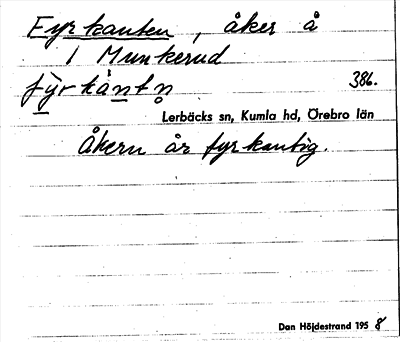 Fyrkanten, åker å
1 Munkerud
fỳ̱rkánt̥n 386.
Lerbäcks sn, Kumla hd, Örebro län
Åkern är fyrkantig.
Dan Höjdestrand 1958